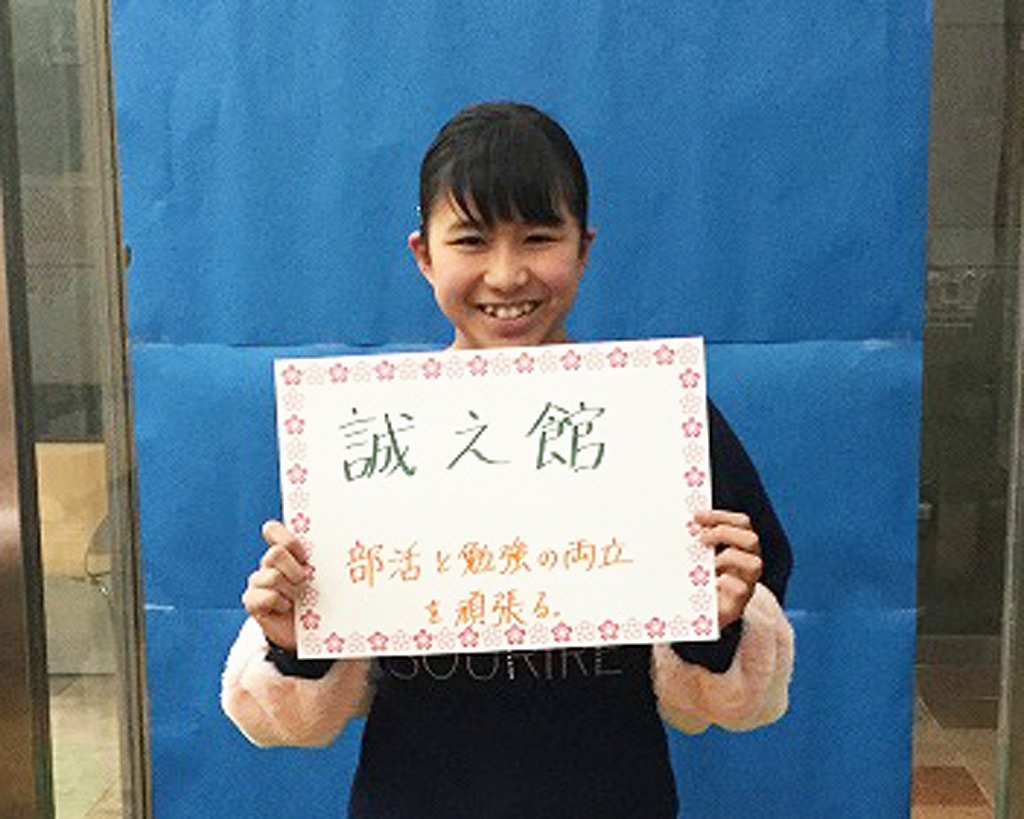 誠え館
部活と勉強の両立
を頑張る。
SOURIRE